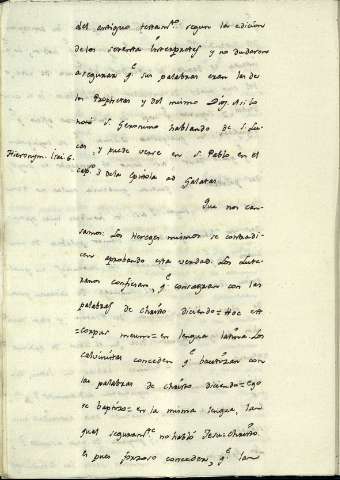 del antiguo testam.to segun la edicion
de los setenta Interpretes y no dudaron
asegurar q.e sus palabras eran las de
los Prophetas y del mismo Dios. Asi lo
notó S. Geronimo hablando de S. Lu-
cas, y puede verse en S. Pablo en el
Hieronym. Isai. 6.
cap.o 3 de la Epistola ad Galatas.
Que nos can-
samos. Los Hereges mismos se contradi-
cen aprobando esta verdad. Los Lute-
ranos confiesan, q.e consagran con las
palabras de Christo diciendo = Hoc est
= corpus meum = en lengua latina. Los
calvinistas conceden q.e bautizan con
las palabras de Christo diciendo = ego
te baptizo = en la misma lengua, la
qual seguram.te no habló Jesu-Christo.
Es pues forzoso conceder, q.e las